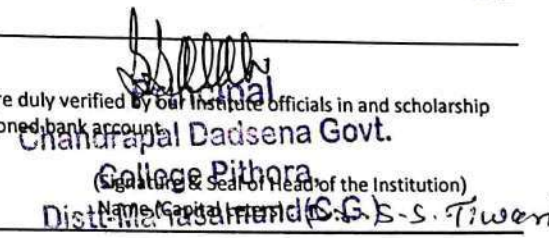 Principal
re duly verified by our Institute officials in and scholarship
oned bank account.
Chandrapal Dadsena Govt.
College Pithora,
(Signature & Seal of Head of the Institution)
Name (Capital Letters)
Distt-Mahasamund (C.G.) S-S. Tiwari